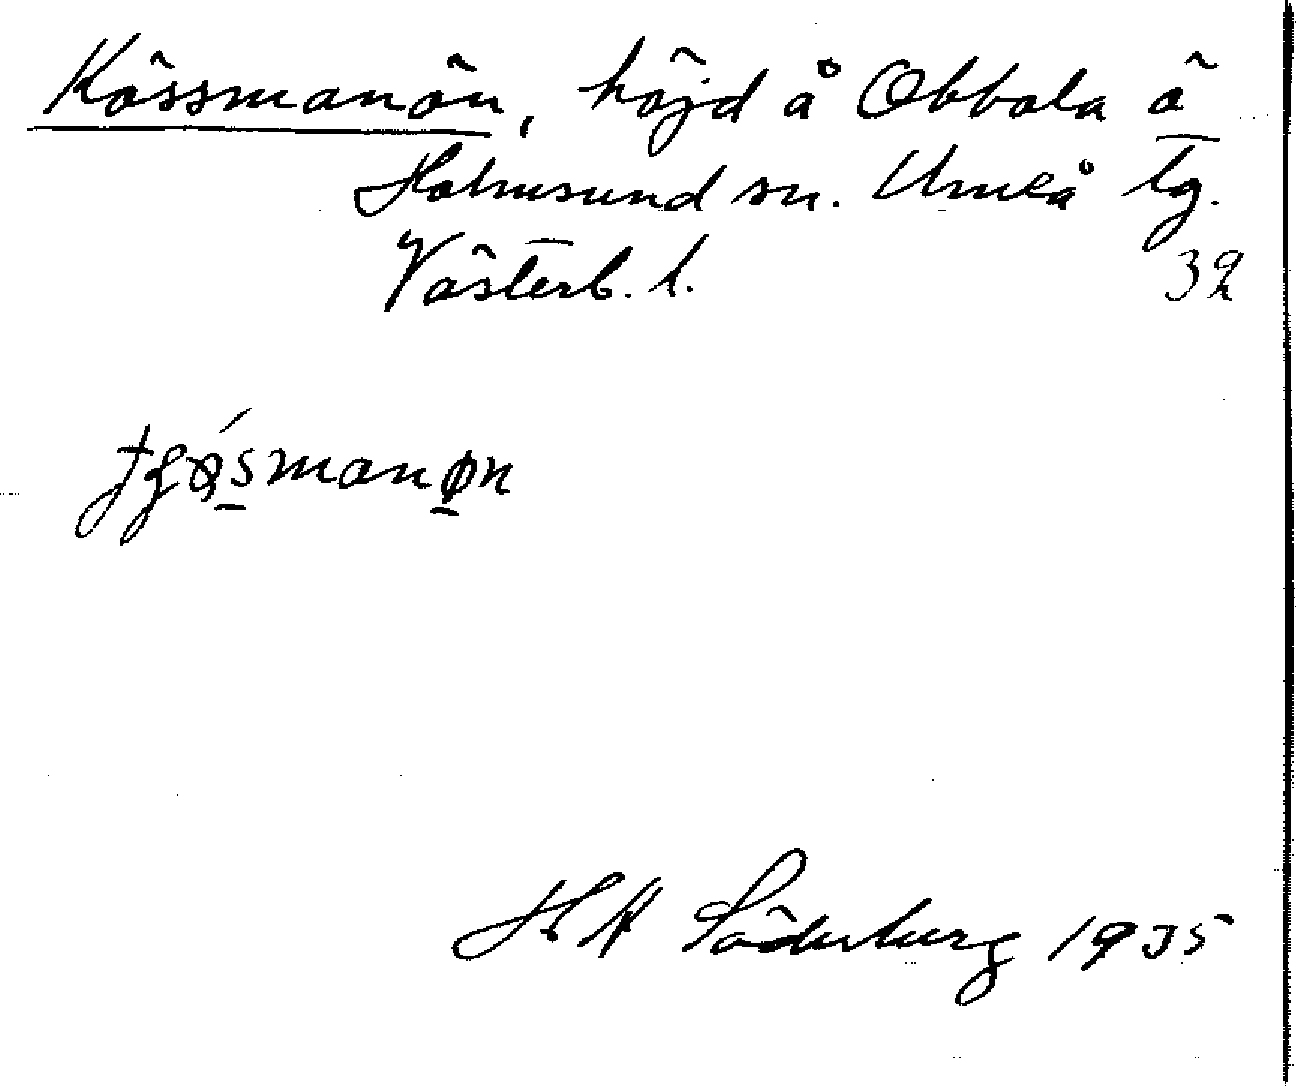 Kössmanön, höjd å Obbola ö
Holmsund sn. Umeå tg.
Västerb. l. 32
H A Söderberg 1935